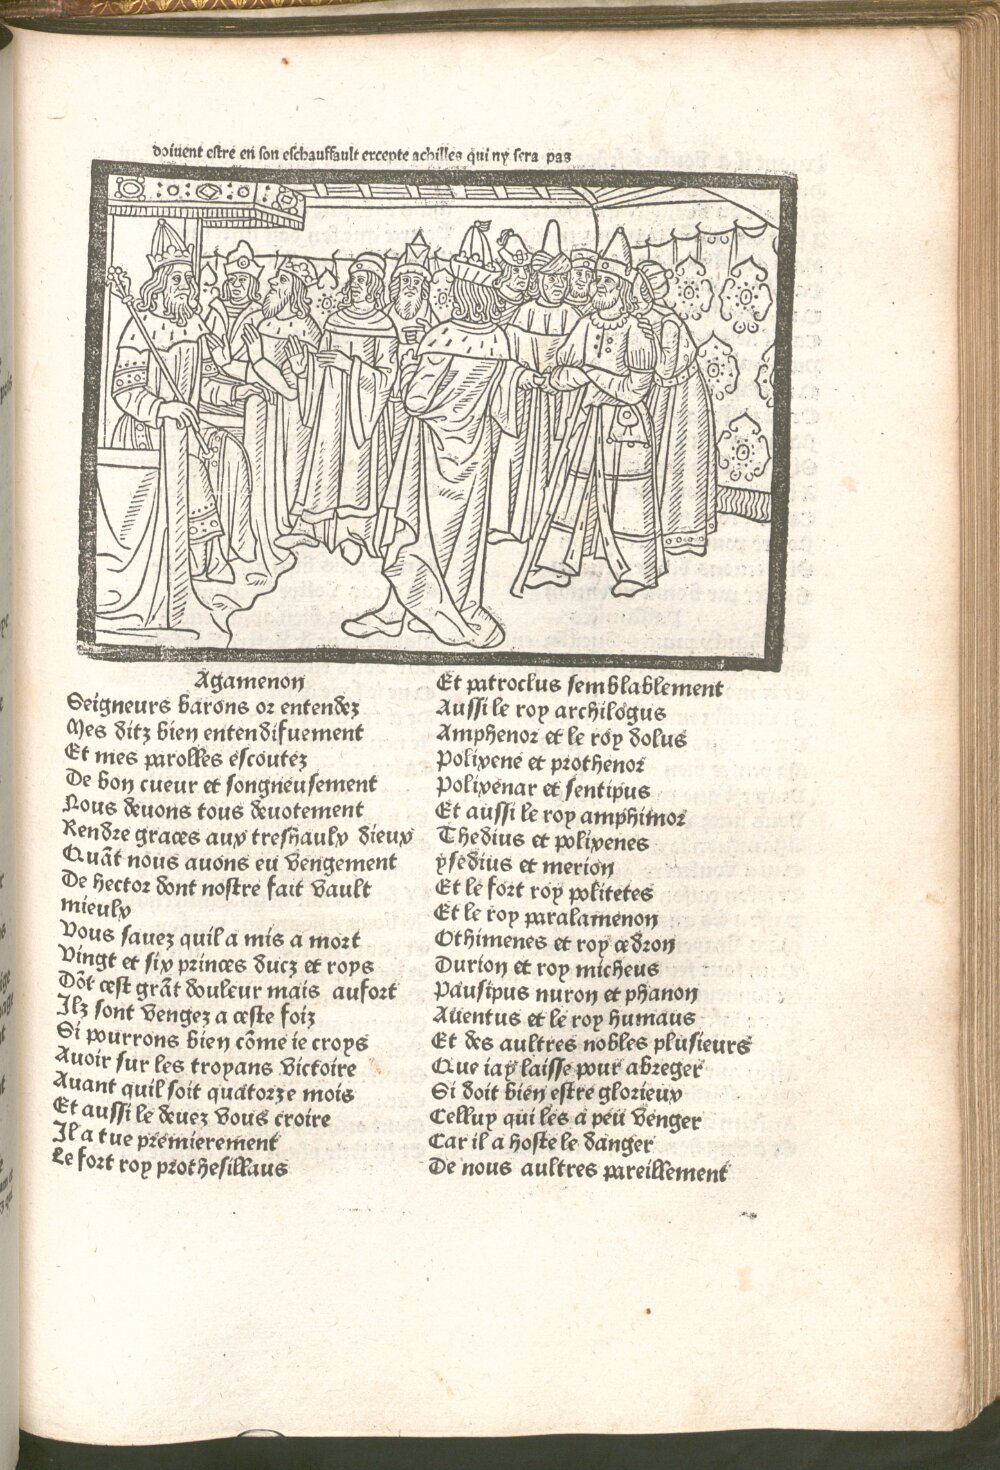 doiuent estre en son eschauffault excepte achilles qui ny sera pas
Agamenon
Seigneurs barons or entendez
Mes ditz bien entendifuement
Et mes parolles escoutez
De bon cueur et songneusement
Nous deuons tous deuotement
Rendre graces aux treshaulx dieux
Quãt nous auons eu vengement
De hector dont nostre fait vault
mieulx
Vous sauez quil a mis a mort
Vingt et six princes ducz et roys
Dõt cest grãt douleur mais aufort
Ilz sont vengez a ceste foiz
Si pourrons bien cõme ie croys
Auoir sur les troyans victoire
Auant quil soit quatorze mois
Et aussi le deuez vous croire
Il a tue premierement
Le fort roy prothesillaus
Et patroclus semblablement
Aussi le roy archilogus
Amphenor et le roy dolus
Polixene et prothenor
Polixenar et sentipus
Et aussi le roy amphimor
Thedius et polixenes
ysedius et merion
Et le fort roy politetes
Et le roy paralamenon
Othimenes et roy cedron
Durion et roy micheus
Pausipus nuron et phanon
Auentus et le roy humaus
Et des aultres nobles plusieurs
Que iay laisse pour abreger
Si doit bien estre glorieux
Celluy qui les a peu venger
Car il a hoste le danger
De nous aultres pareillement